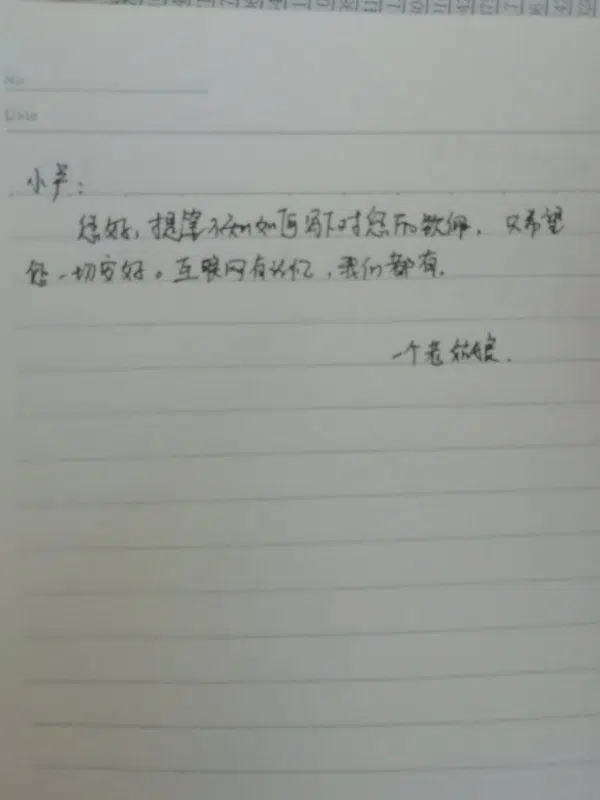 No
Date
小芦：
您好，提笔不知如何写下对您的钦佩，只希望
您一切安好。互联网有记忆，我们都有.
一个老姑娘.